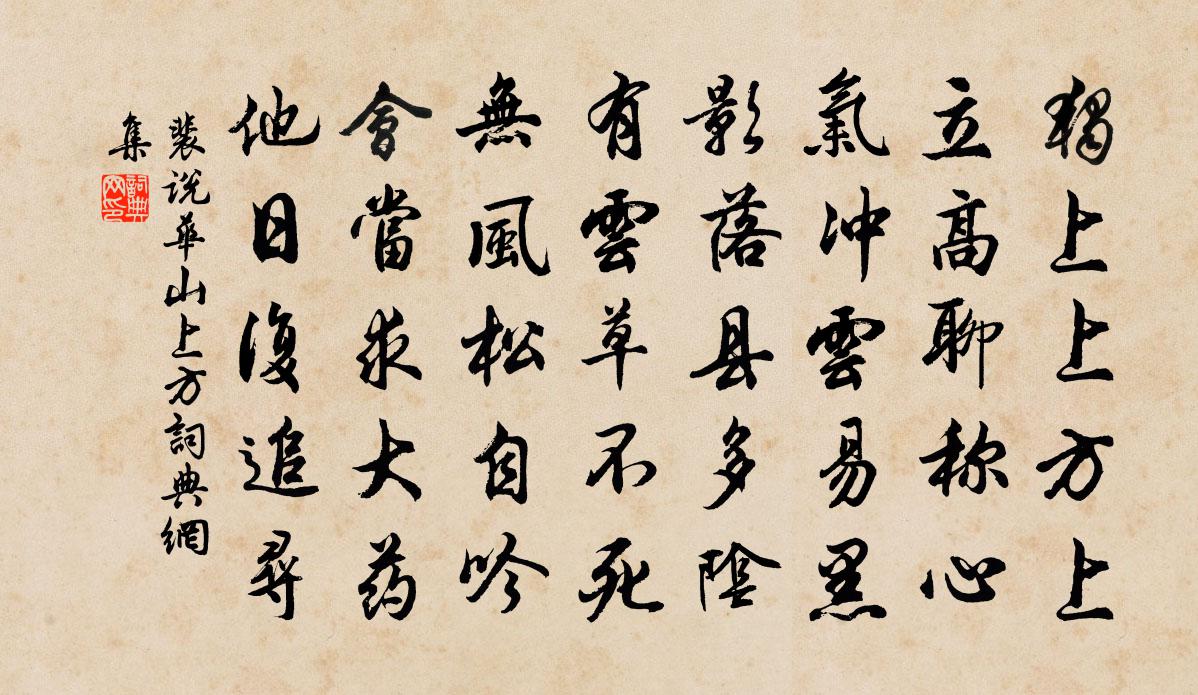 獨上上方上
立高聊称心
氣冲雲易黑
影落县多陰
有雲草不死
無風松自吟
會當求大药
他日復追尋
裴説華山上方詞典網
集
詞典
网印